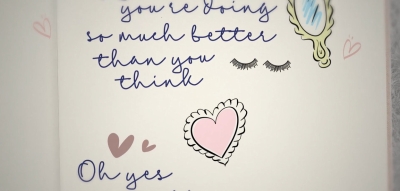 you're doing
so much better
than you
think
Oh yes